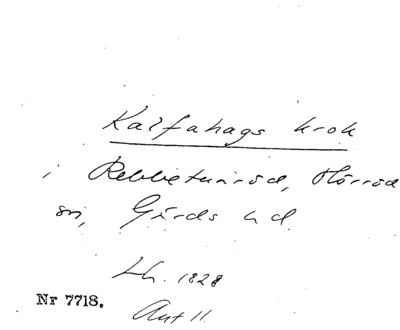 Kalfahags krok
i Rebbetuaröd, Hörröd
sn, Gärds hd.
Lh. 1828
Nr 7718.
Akt 11.